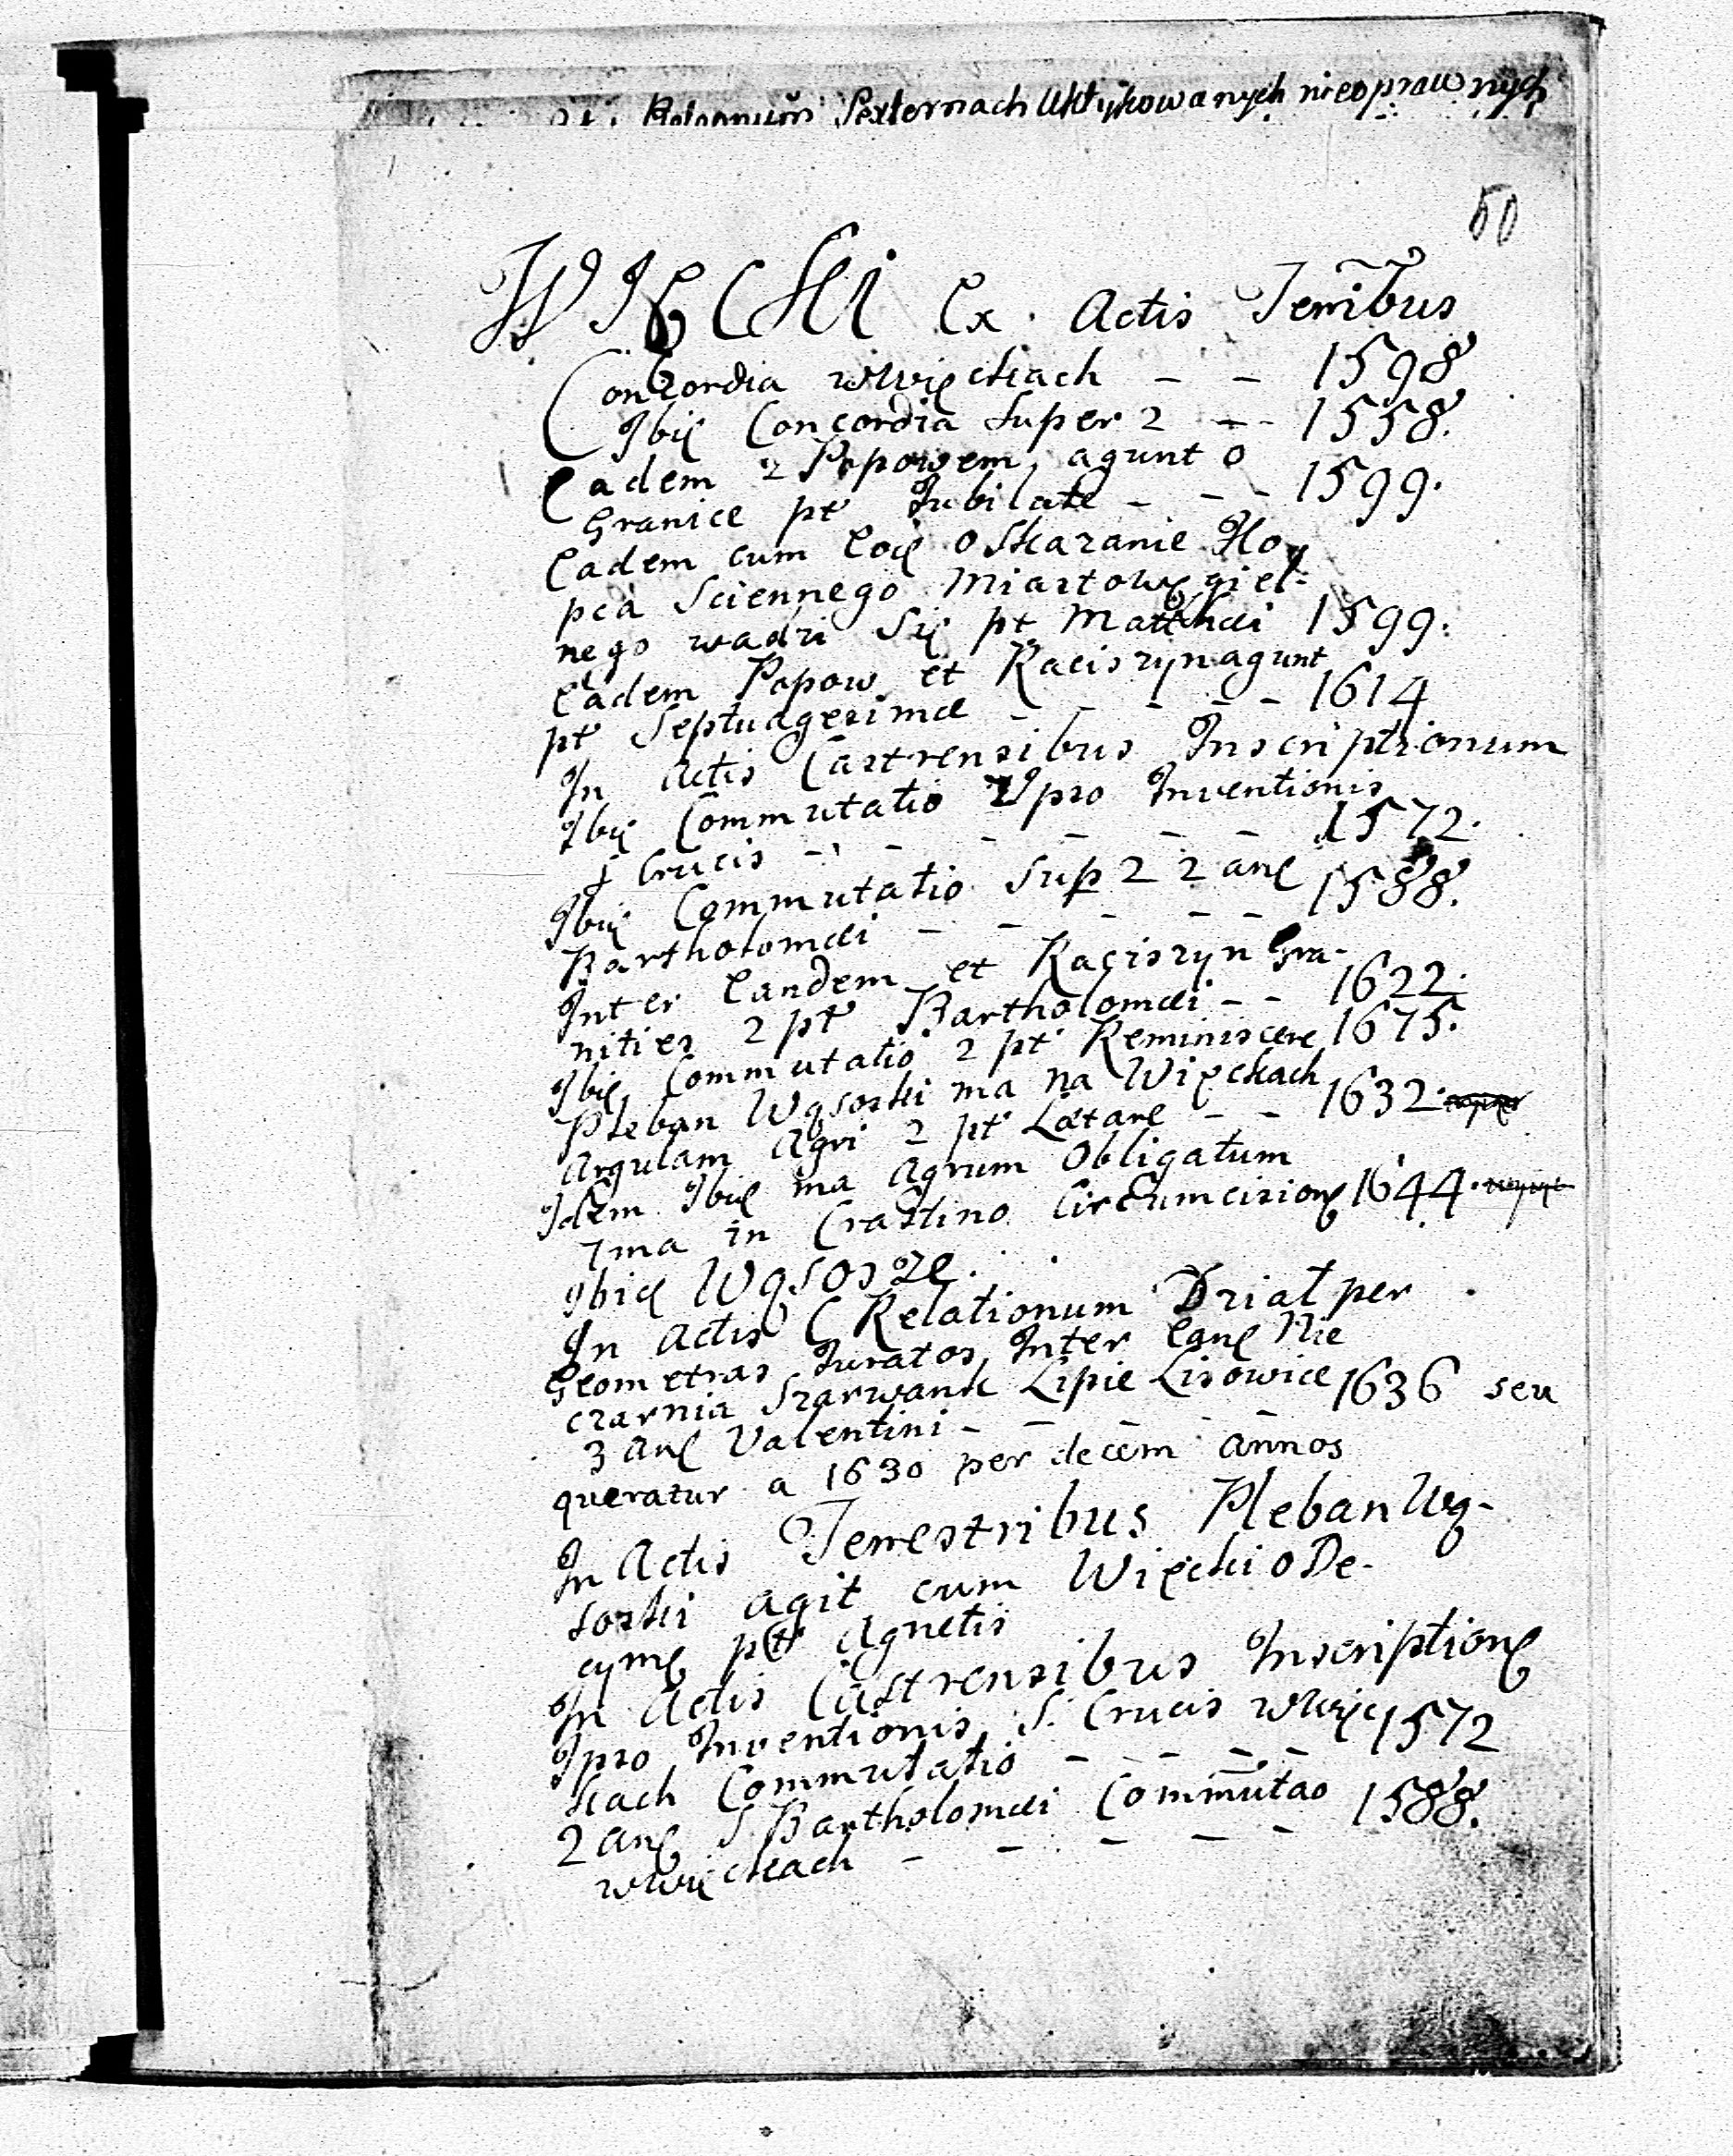 Sexternach Uktykowanych nieoprawnych
50
WIĘCKI Ex Actis Terribus
Concordia wWięckach – – 1598
Ibię Concordia super 2 – – 1558.
Eadem z Popowem, agunt o
Granice pt Jubilate – – – 1599.
Eadem cum Eoę o skazanie Ko
pca Sciennego Miastowęgiel-
nego wadzi się pt Matthæi 1599.
Eadem Popow et Raciszyn agunt
pt Septuagesimæ – – – – – 1614
In Actis Castrensibus Inscriptionum
Ibię Commutatio Ipso Inventionis
S Crucis – – – – – – 1572.
Ibię Commutatio sup 2 2 anę
Bartholomæi – – – – – 1588.
Inter Eandem et Raciszyn Gra-
nities 2 pt Bartholomæi – – 1622.
Ibię Commutatio 2 pt Reminiscere 1675.
Pleban Wąsoski ma na Więckach
Argulam Agri 2 pt Lætare – – 1632.
Idem Ibię ma Agrum Obligatum
Ima in Crastino Circumcisionę 1644.
Ibię Wąsosze.
In Actis C Relationum Dział per
Geometras Juratos Inter Eanę Nie
czarnia Szarwark Lipie Lisowice 1636 seu
3 anę Valentini – – – – –
queratur a 1630 per decem annos
In Actis Terrestribus Pleban Wą-
soski agit cum Więcki o De-
cymę pt Agnetis
In Actis Castrensibus Inscriptionę
Ipso Inventionis S. Crucis wWięc 1572
kach Commutatio – – – –
2 anę S Bartholomæi Commutao 1588.
wWięckach – – – – –